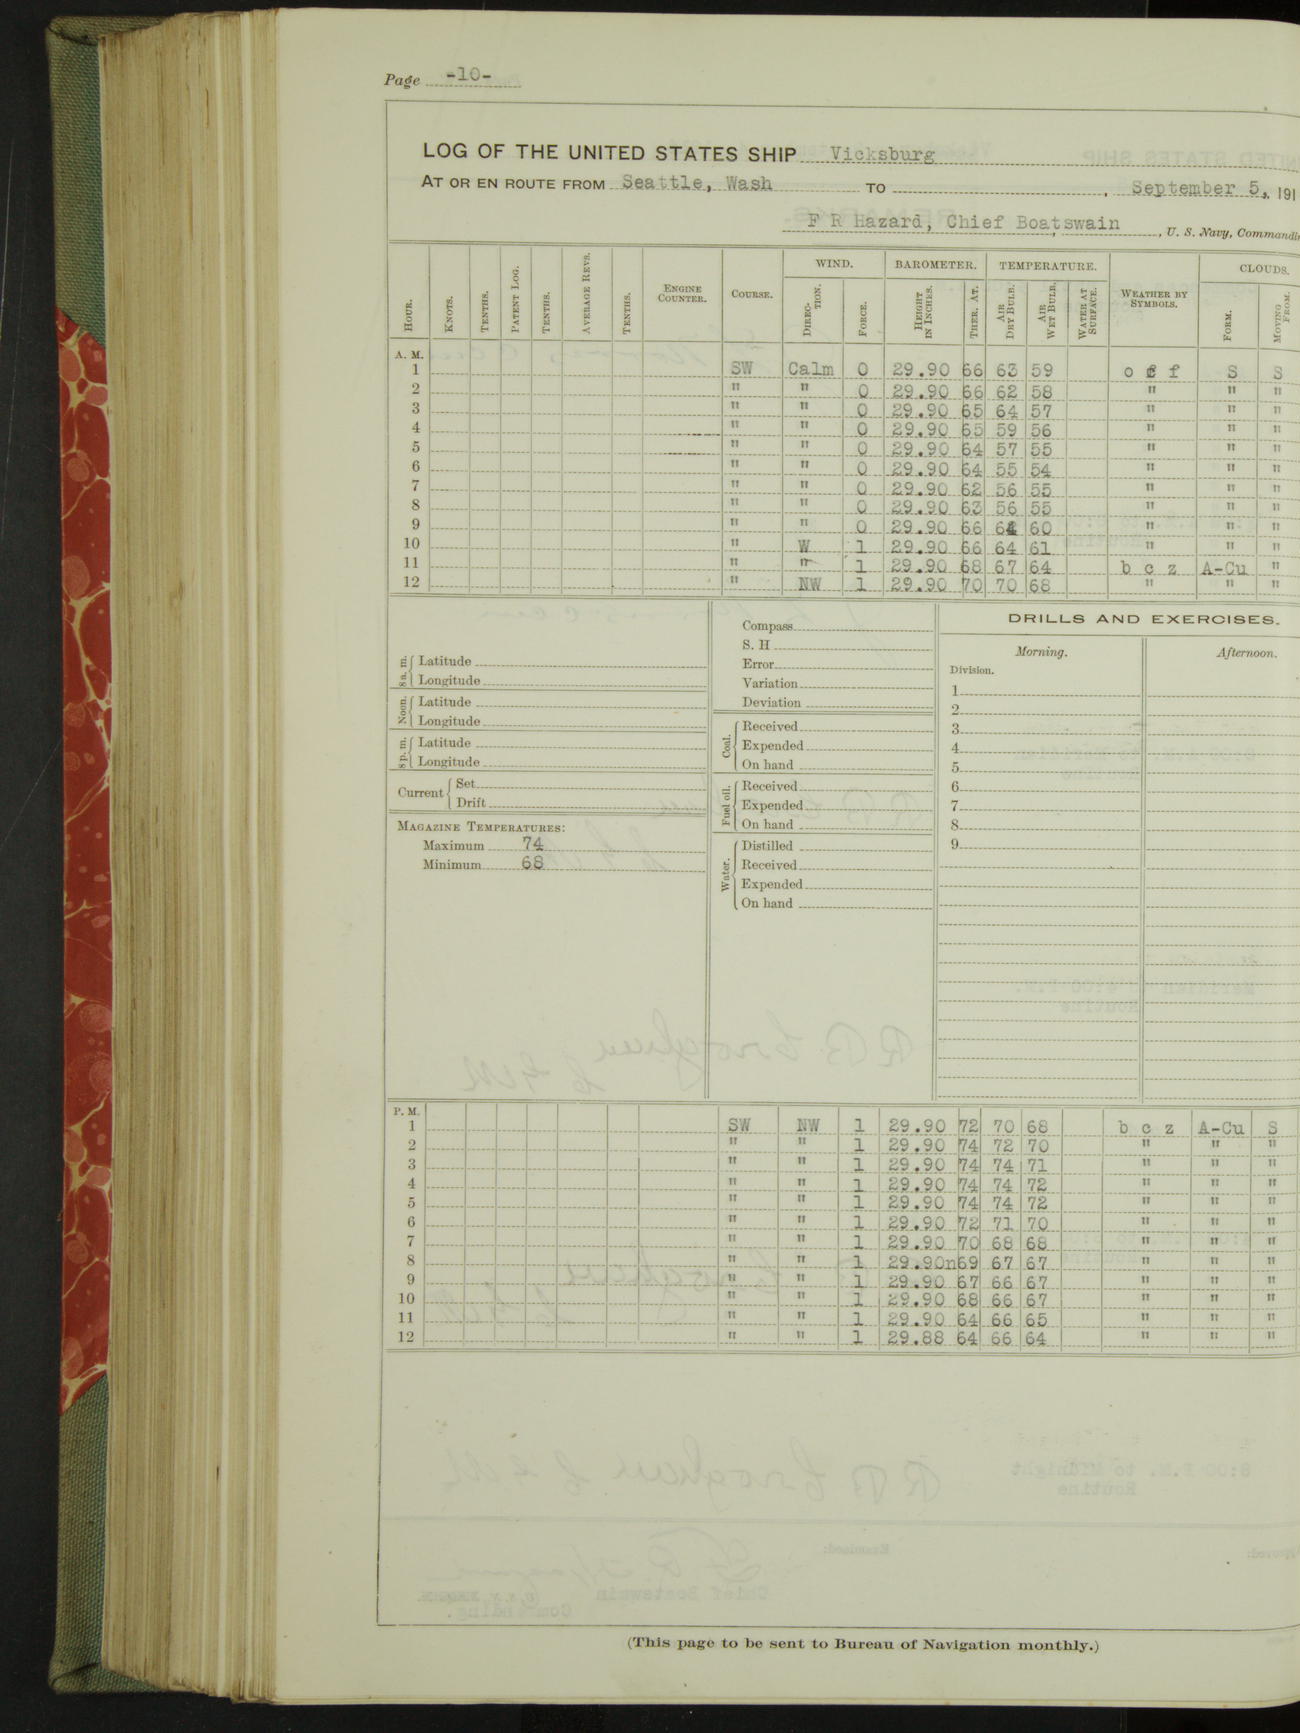 Page -10-
LOG OF THE UNITED STATES SHIP Vicksburg
AT OR EN ROUTE FROM Seattle, Wash TO , September 5, 191
F R Hazard, Chief Boatswain , U. S. Navy, Commandi
WIND. BAROMETER. TEMPERATURE. CLOUDS.
HOUR. KNOTS. TENTHS. PATENT LOG. TENTHS. AVERAGE REVS. TENTHS. ENGINE COUNTER. COURSE. DIRECTION. FORCE. HEIGHT IN INCHES. THER. AT. AIR DRY BULB. AIR WET BULB. WATER AT SURFACE. WEATHER BY SYMBOLS. FORM. MOVING FROM.
A. M.
1 SW Calm 0 29.90 66 63 59 o f S S
2 " " 0 29.90 66 62 58 " " "
3 " " 0 29.90 65 64 57 " " "
4 " " 0 29.90 65 59 56 " " "
5 " " 0 29.90 64 57 55 " " "
6 " " 0 29.90 64 55 54 " " "
7 " " 0 29.90 62 56 55 " " "
8 " " 0 29.90 63 56 55 " " "
9 " " 0 29.90 66 64 60 " " "
10 " W 1 29.90 66 64 61 " " "
11 " " 1 29.90 68 67 64 b c z A-Cu "
12 " NW 1 29.90 70 70 68 " " "
8 a. m. Latitude
Longitude
Noon. Latitude
Longitude
8 p. m. Latitude
Longitude
Current Set
Drift
MAGAZINE TEMPERATURES:
Maximum 74
Minimum 68
Compass
S. H
Error
Variation
Deviation
Coal. Received
Expended
On hand
Fuel oil. Received
Expended
On hand
Water. Distilled
Received
Expended
On hand
DRILLS AND EXERCISES.
Morning. Afternoon.
Division.
1
2
3
4
5
6
7
8
9
P. M.
1 SW NW 1 29.90 72 70 68 b c z A-Cu S
2 " " 1 29.90 74 72 70 " " "
3 " " 1 29.90 74 74 71 " " "
4 " " 1 29.90 74 74 72 " " "
5 " " 1 29.90 74 74 72 " " "
6 " " 1 29.90 72 71 70 " " "
7 " " 1 29.90 70 68 68 " " "
8 " " 1 29.90n69 67 67 " " "
9 " " 1 29.90 67 66 67 " " "
10 " " 1 29.90 68 66 67 " " "
11 " " 1 29.90 64 66 65 " " "
12 " " 1 29.88 64 66 64 " " "
(This page to be sent to Bureau of Navigation monthly.)